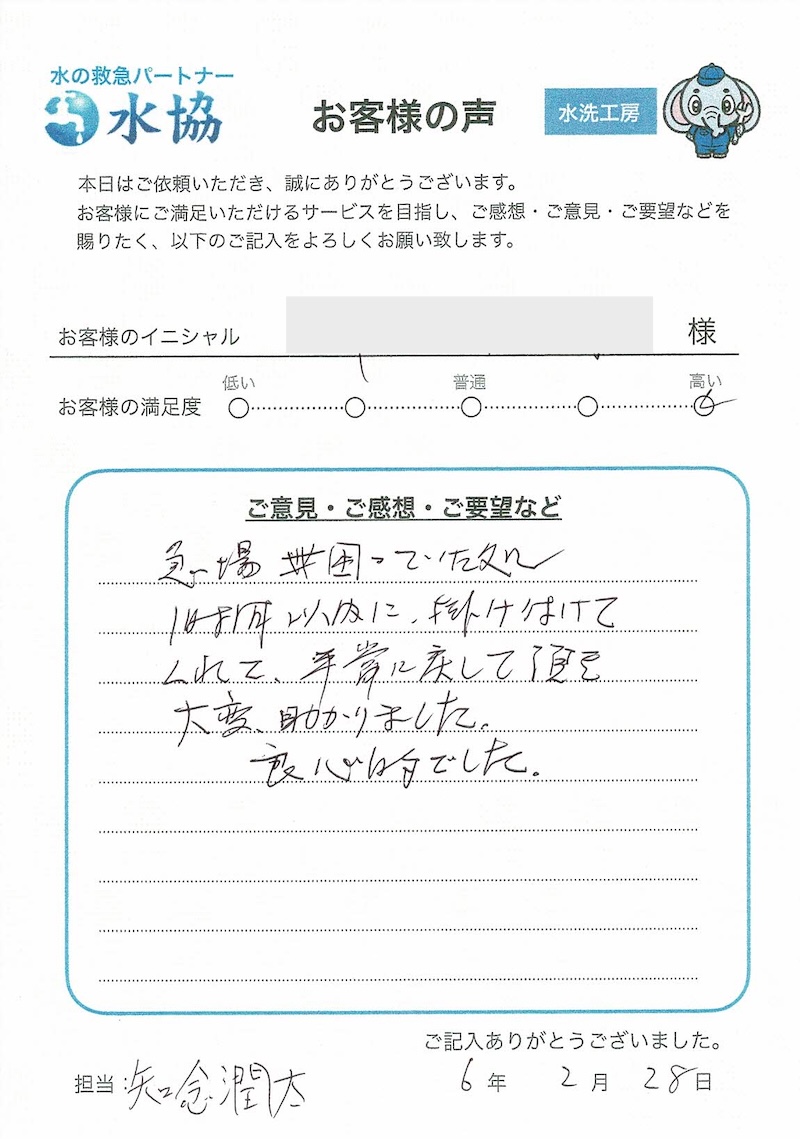 水の救急パートナー
水協
お客様の声
水洗工房
本日はご依頼いただき、誠にありがとうございます。
お客様にご満足いただけるサービスを目指し、ご感想・ご意見・ご要望などを
賜りたく、以下のご記入をよろしくお願い致します。
お客様のイニシャル 様
低い 普通 高い
お客様の満足度
ご意見・ご感想・ご要望など
困っていた処
1時間以内に、掛け付けて
くれて、平常に戻して頂き
大変、助かりました。
良心的でした。
ご記入ありがとうございました。
担当:知念潤太 6年 2月 28日